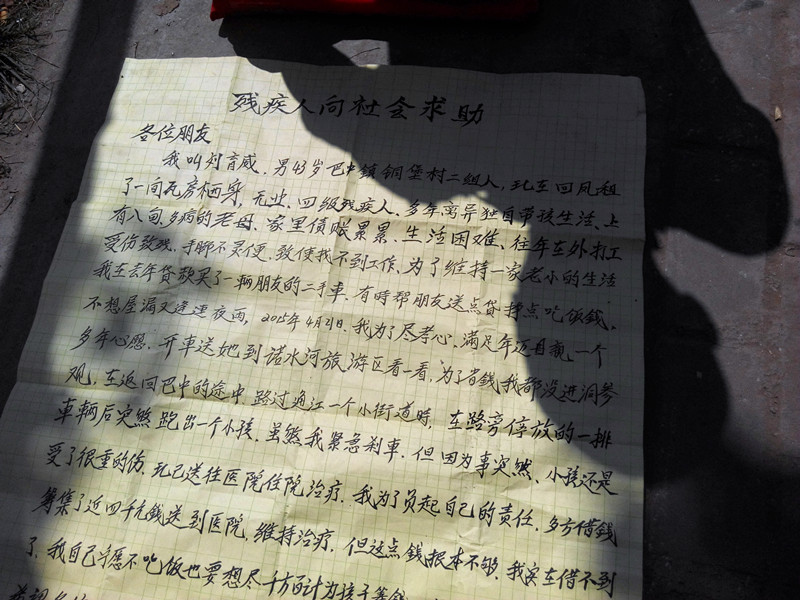 残疾人向社会求助
各位朋友
我叫刘育威.男43岁巴中镇铜堡村二组人,现在回风租
了一间瓦房栖身,无业.四级残疾人.多年离异独自带孩生活、上
有八旬多病的老母、家里债账累累.生活困难、往年在外打工
受伤致残.手脚不灵便.致使我找不到工作.为了维持一家老小的生活
我在去年贷款买了一辆朋友的二手车.有時帮朋友送点货挣点吃饭錢、
不想屋漏又逢連夜雨,2015年4月21日.我为了尽孝心.满足年迈母親一个
多年心愿.开車送她到諾水河旅游区看一看,为了省錢我都没进洞参
观,在返回巴中的途中路过通江一个小街道時,在路旁停放的一排
車辆后突然跑出一个小孩.虽然我紧急刹車.但因为事突然、小孩还是
受了很重的伤.現已送往医院住院治疗.我为了负起自己的责任.多方借錢
筹集了近四千元錢送到医院,维持治疗.但这点錢根本不够.我实在借不到
了.我自己宁愿不吃饭也要想尽千方百计为孩子筹錢